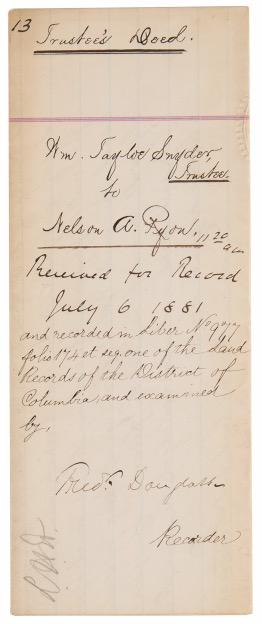 13
Trustee's Deed.
Wm. Tayloe Snyder,
Trustee.
to
Nelson A. Ryon.
11 20 am
Received for Record
July 6 1881
and recorded in Liber No 977
folio 174 et seq. one of the Land
Records of the District of
Columbia, and examined
by,
Fredk Douglass
Recorder